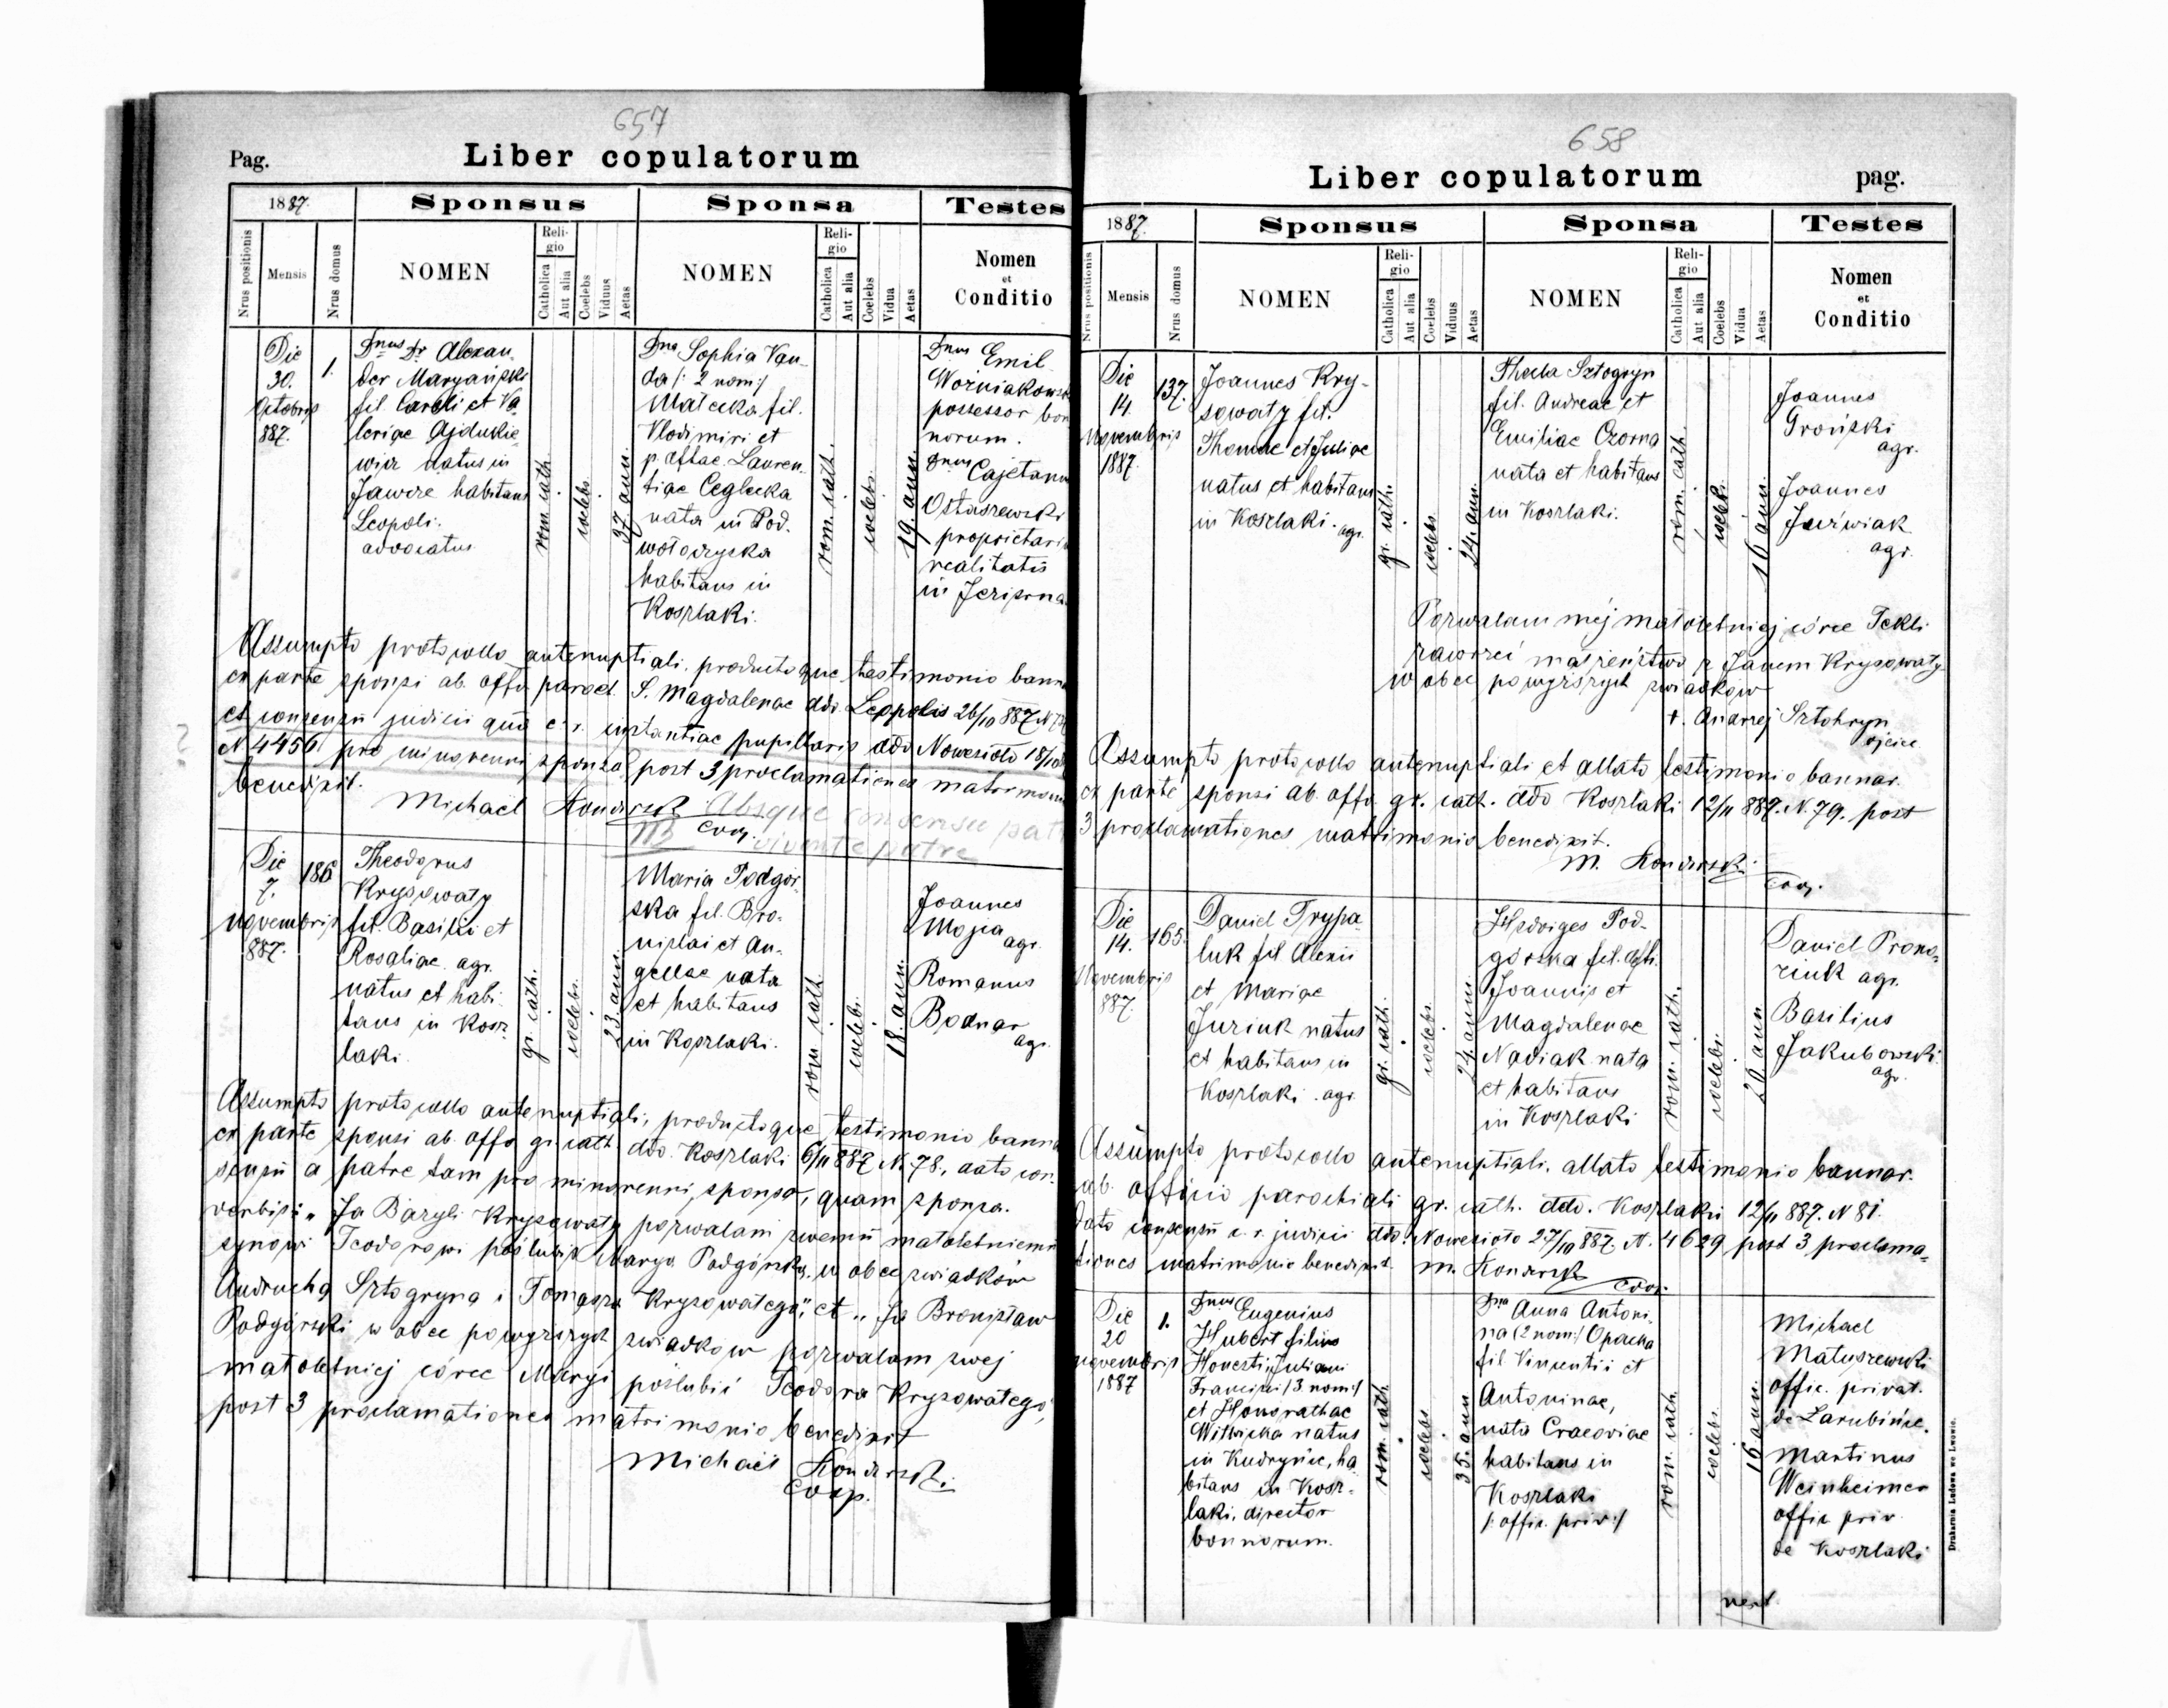 657
Pag.
Liber copulatorum
1887.
Sponsus
Sponsa
Testes
Nrus positionis
Mensis
Nrus domus
NOMEN
Religio
Catholica
Aut alia
Coelebs
Viduus
Aetas
NOMEN
Religio
Catholica
Aut alia
Coelebs
Vidua
Aetas
Nomen
et
Conditio
Die
30.
Octobris
887.
1.
Dnus Dr Alexan-
der Maryański
fil. Caroli et Va-
leriae Ajdukie-
wicz natus in
Jawcze habitans
Leopoli.
advocatus
rom. cath.
coelebs.
37. ann.
Dna Sophia Van-
da /: 2 nom :/
Malecka fil.
Vlodimiri et
p. deftae. Lauren-
tiae Ceglecka
nata in Pod-
wołoczyska
habitans in
Koszlaki.
rom. cath.
coelebs.
19. ann.
Dnus Emil
Woźniakowski
possessor bon
norum.
Dnus Cajetanu
Ostaszewski
proprietari
realitatis
in Jezierna
Assumpto protocollo antenuptiali, productoque testimonio bann
ex parte sponsi ab. offo paroch. S. Magdalenae ddo. Leopolis 26/10 887 N
et consensu judicii qua c. r. instantiae pupillaris ddo Nowesioło 18/10
N 4456 pro minorenni sponsa, post 3 proclamationes matrimon
benedixit.
Michael Konarski
Coop.
Absque consensu pat
NB vivente patre
Die
7.
Novembris
887.
186
Theodorus
Krysowaty
fil. Basilii et
Rosaliae agr.
natus et habi-
tans in Kosz-
laki.
gr. cath.
coelebs.
23. ann.
Maria Podgór-
ska fil. Bro-
nislai et An-
gellae nata
et habitans
in Koszlaki.
rom cath.
coelebs.
18. ann.
Joannes
Mojsa
agr.
Romanus
Bodnar
agr.
Assumpto protocollo antenuptiali, productoque testimonio bann
ex parte sponsi ab. offo gr. cath. ddo. Koszlaki 6/11 887 N. 78, dato con-
sensu a patre tam pro minorenni sponso, quam sponsa.
verbis: „Ja Bazyli Krysowaty pozwalam swemu małoletniemu
synowi Teodorowi poślubić Maryą Podgórską, w obec swiadków
Andrucha Sztogryna i Tomasza Krysowatego," et „Ja Bronisław
Podgórski w obec powyższych swiadków pozwalam swej
małoletniej córce Maryi poślubić Teodora Krysowatego,
post 3 proclamationes matrimonio benedixit
Michael Konarski
Coop.
658
Liber copulatorum
pag.
1887.
Sponsus
Sponsa
Testes
Nrus positionis
Mensis
Nrus domus
NOMEN
Religio
Catholica
Aut alia
Coelebs
Viduus
Aetas
NOMEN
Religio
Catholica
Aut alia
Coelebs
Vidua
Aetas
Nomen
et
Conditio
Die
14.
Novembris
1887.
137.
Joannes Kry-
sowaty fil.
Thomae et Juliae
natus et habitans
in Koszlaki. agr.
gr. cath.
coelebs.
24. ann.
Thecla Sztogryn
fil. Andreae et
Emiliae Czorna
nata et habitans
in Koszlaki.
rom. cath.
coelebs.
16 ann.
Joannes
Groński
agr.
Joannes
Juźwiak
agr.
Pozwalam mej małoletniej córce Tekli
zawrzeć małżeństwo z Janem Krysowaty
w obec powyższych swiadków
+. Andrzej Sztohryn
ojciec
Assumpto protocollo antenuptiali et allato testimonio bannor.
ex parte sponsi ab. offo gr. cath. ddo Koszlaki 12/11 887. N. 79. post
3 proclamationes matrimonio benedixit.
M. Konarski
Coop.
Die
14.
Novembris
887.
165.
Daniel Trypa-
luk fil Alexii
et Mariae
Juriuk natus
et habitans in
Koszlaki. agr.
gr. cath.
coelebs.
24 ann.
Hedviges Pod-
górska fil. defti.
Joannis et
Magdalenae
Nadiak nata
et habitans
in Koszlaki
rom. cath.
coelebs.
20 ann
Daniel Prona-
ziuk agr.
Basilius
Jakubowski
agr.
Assumpto protocollo antenuptiali, allato testimonio bannor.
ab. officio parochiali gr. cath. ddo. Koszlaki 12/11 887. N 81.
dato consensu c. r. judicii ddo. Nowesioło 27/10 887. N. 4629 post 3 proclama-
tiones matrimonio benedixit. M. Konarski
Coop.
Die
20
Novembris
1887
1.
Dnus Eugenius
Hubert filius
Honesti, Juliani
Francisci /3 nom:/
et Honorathae
Witwicka natus
in Kudryńce, ha-
bitans in Kosz-
laki, director
bonnorum.
rom. cath.
coelebs.
35. ann
Dna Anna Antoni-
na (2 nom:/ Opacka
fil Vincentii et
Antoninae,
nata Cracoviae
habitans in
Koszlaki
/: offic. priv :/
rom. cath.
coelebs.
16 ann.
Michael
Matuszewski
offic. privat.
de Zarubińce.
Martinus
Weinheimer
offic priv.
de Koszlaki
Drukarnia Ludowa we Lwowie.